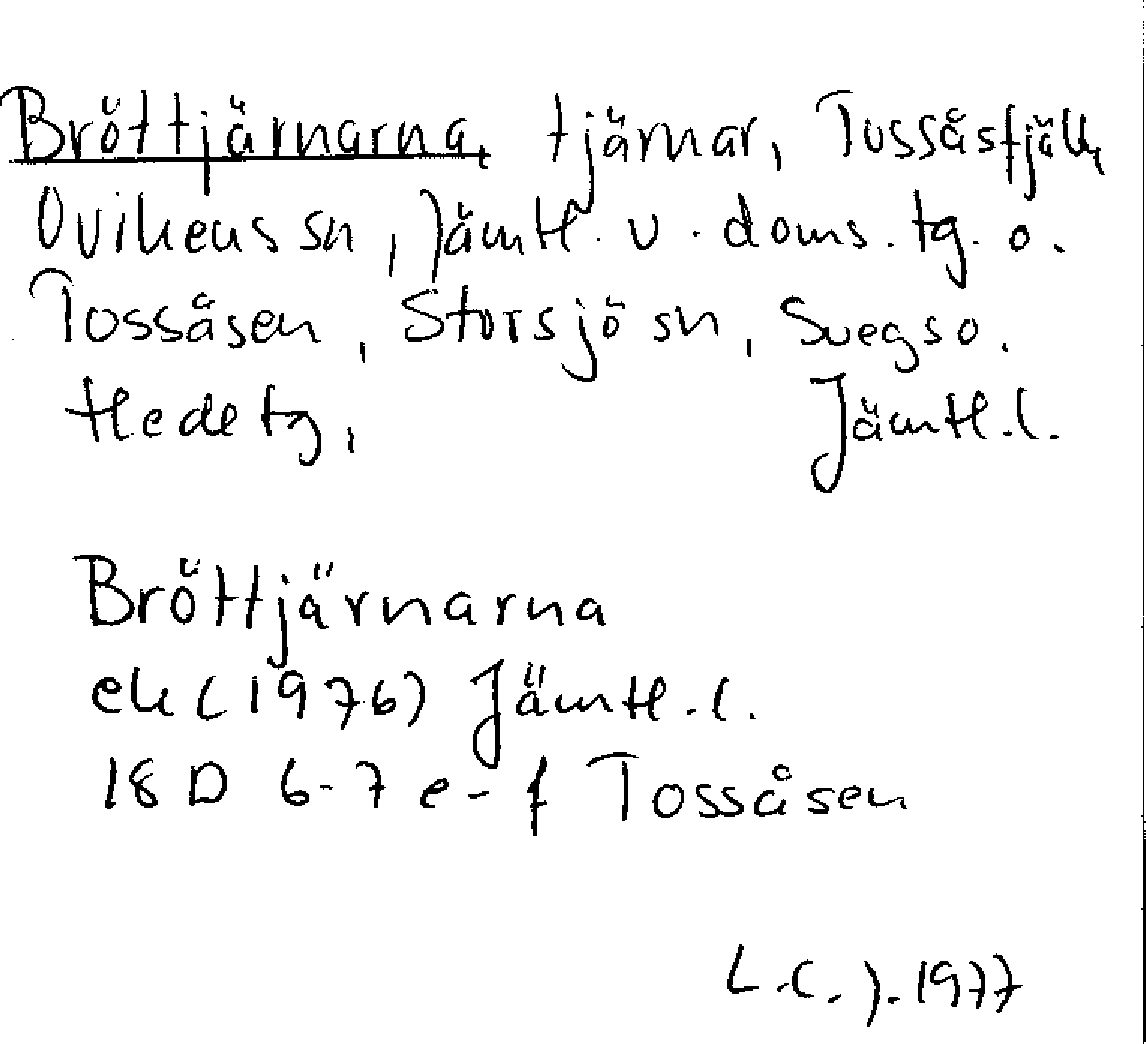 Bröttjärnarna, tjärnar, Tossåsfjäll,
Ovikens sn, Jämtl. v. doms. tg. o.
Tossåsen, Storsjö sn, Svegs o.
Hede tg, Jämtl. l.
Bröttjärnarna
ek (1976) Jämtl. l.
18 D 6-7 e-f Tossåsen
L.C.J. 1977